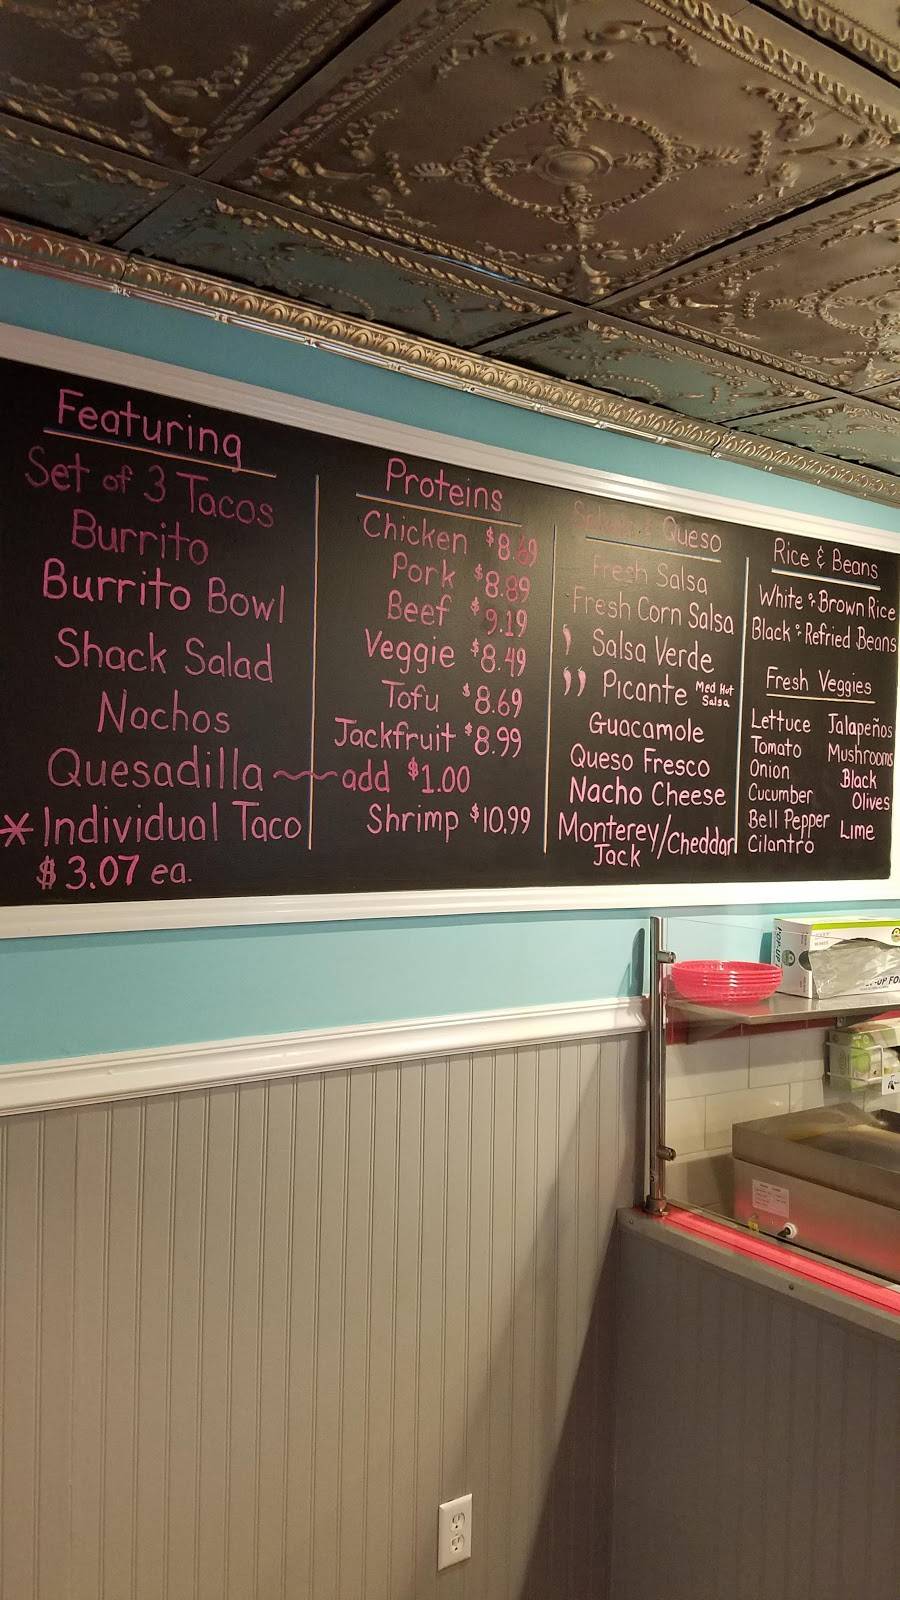 Featuring
Set of 3 Tacos
Burrito
Burrito Bowl
Shack Salad
Nachos
Quesadilla ~ add $1.00
* Individual Taco
$3.07 ea.
Proteins
Chicken $8.69
Pork $8.89
Beef $9.19
Veggie $8.49
Tofu $8.69
Jackfruit $8.99
Shrimp $10.99
Queso
Fresh Salsa
Fresh Corn Salsa
Salsa Verde
Picante Med Hot
Salsa
Guacamole
Queso Fresco
Nacho Cheese
Monterey/Cheddar
Jack
Rice & Beans
White & Brown Rice
Black & Refried Beans
Fresh Veggies
Lettuce
Tomato
Onion
Cucumber
Bell Pepper
Cilantro
Jalapeños
Mushrooms
Black
Olives
Lime
POP-UP